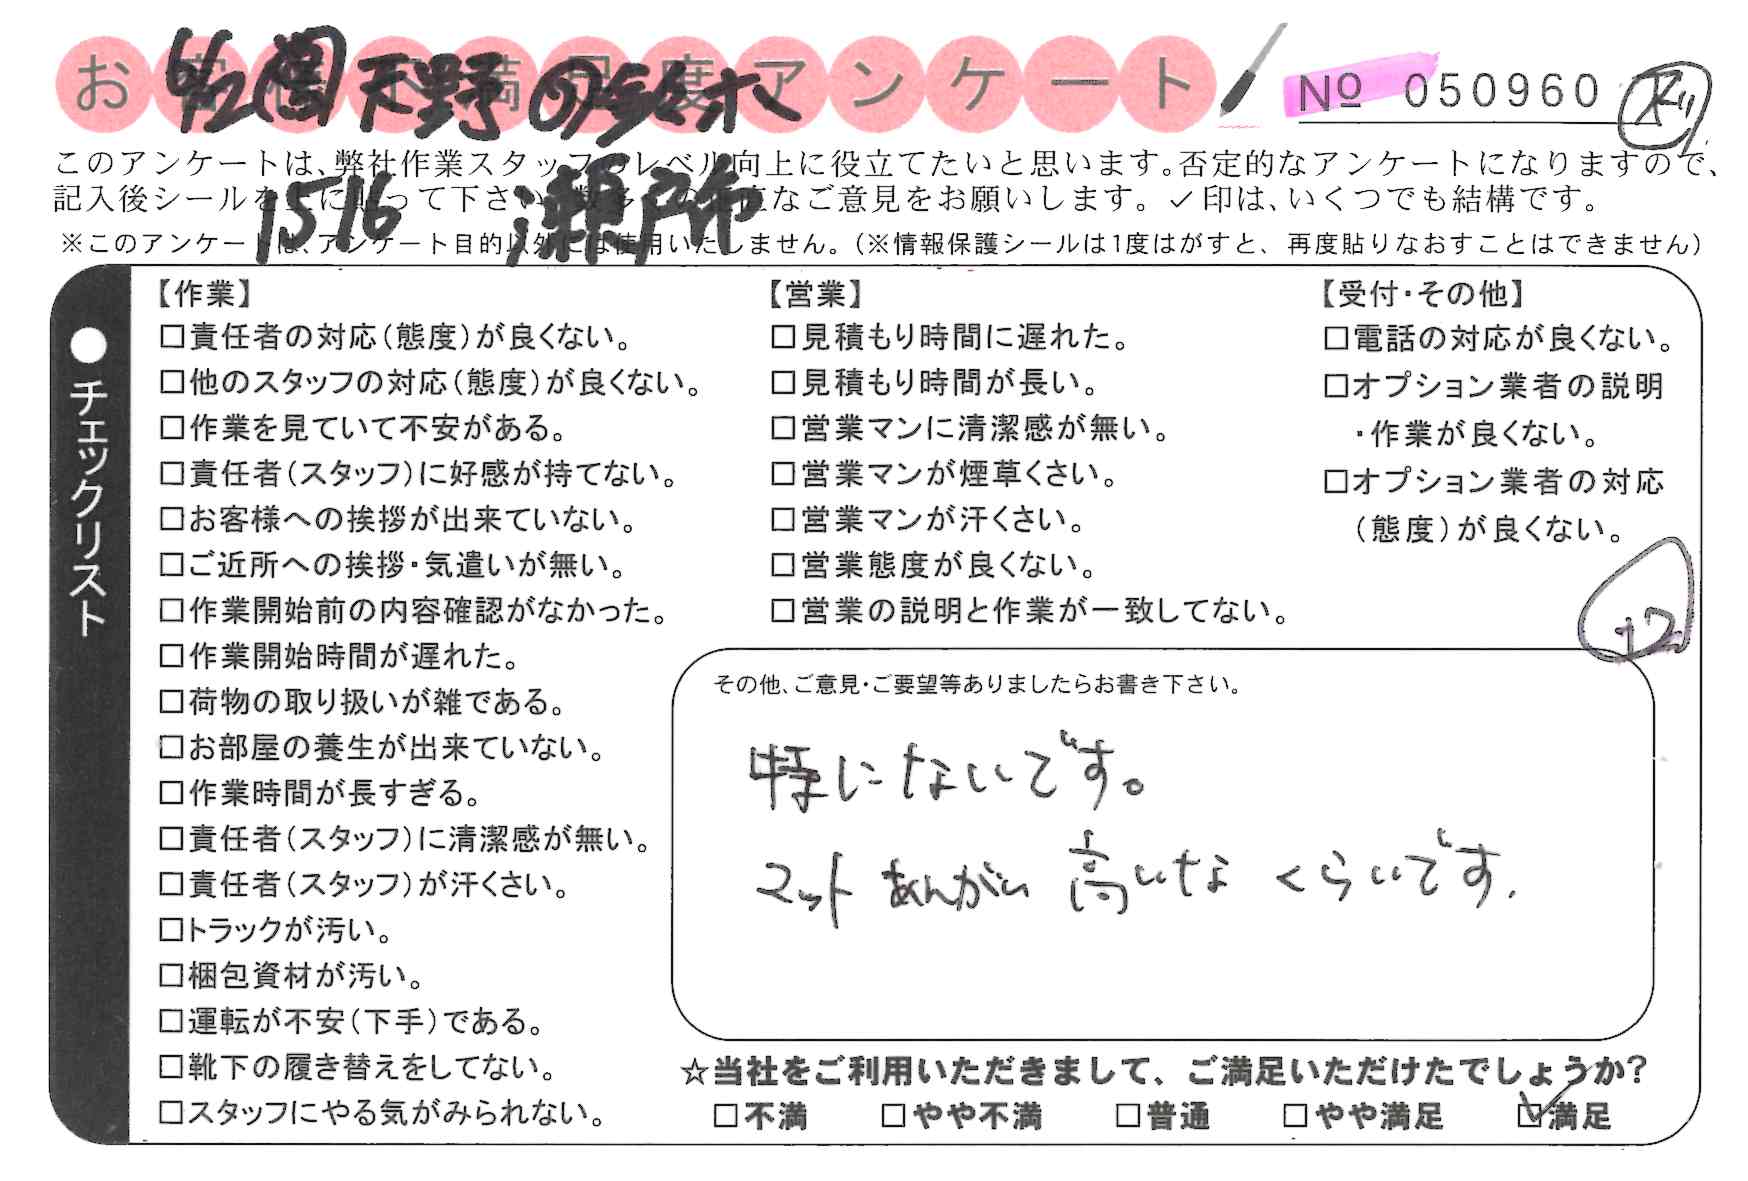 お客様不満足度アンケート
№ 050960
天野
1516 瀬戸市
このアンケートは、弊社作業スタッフのレベル向上に役立てたいと思います。否定的なアンケートになりますので、
記入後シールを上に貼って下さい。数多くの正直なご意見をお願いします。✓印は、いくつでも結構です。
※このアンケートは、アンケート目的以外には使用いたしません。(※情報保護シールは1度はがすと、再度貼りなおすことはできません)
●チェックリスト
【作業】
□責任者の対応(態度)が良くない。
□他のスタッフの対応(態度)が良くない。
□作業を見ていて不安がある。
□責任者(スタッフ)に好感が持てない。
□お客様への挨拶が出来ていない。
□ご近所への挨拶・気遣いが無い。
□作業開始前の内容確認がなかった。
□作業開始時間が遅れた。
□荷物の取り扱いが雑である。
□お部屋の養生が出来ていない。
□作業時間が長すぎる。
□責任者(スタッフ)に清潔感が無い。
□責任者(スタッフ)が汗くさい。
□トラックが汚い。
□梱包資材が汚い。
□運転が不安(下手)である。
□靴下の履き替えをしてない。
□スタッフにやる気がみられない。
【営業】
□見積もり時間に遅れた。
□見積もり時間が長い。
□営業マンに清潔感が無い。
□営業マンが煙草くさい。
□営業マンが汗くさい。
□営業態度が良くない。
□営業の説明と作業が一致してない。
【受付・その他】
□電話の対応が良くない。
□オプション業者の説明
・作業が良くない。
□オプション業者の対応
(態度)が良くない。
+2
その他、ご意見・ご要望等ありましたらお書き下さい。
特にないです。
マット あんがい 高いな くらいです.
☆当社をご利用いただきまして、ご満足いただけたでしょうか?
□不満 □やや不満 □普通 □やや満足 ☑満足